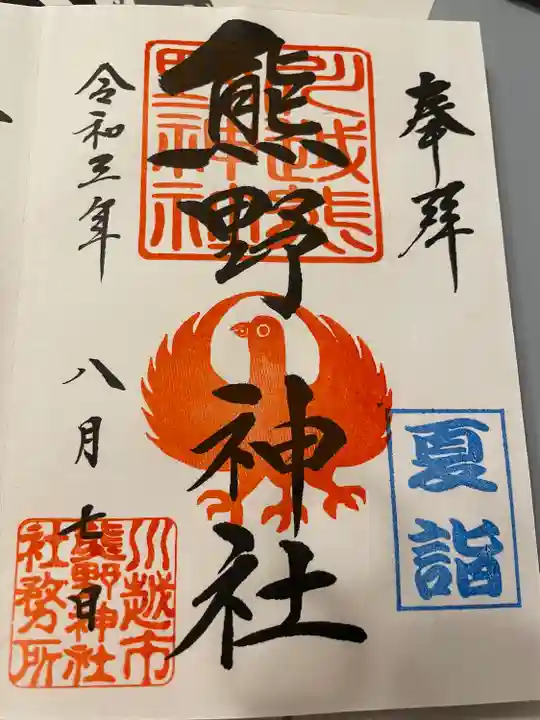 奉拝
夏詣
川越熊
野神社
熊野神社
令和三年
八月七日
川越市
熊野神社
社務所